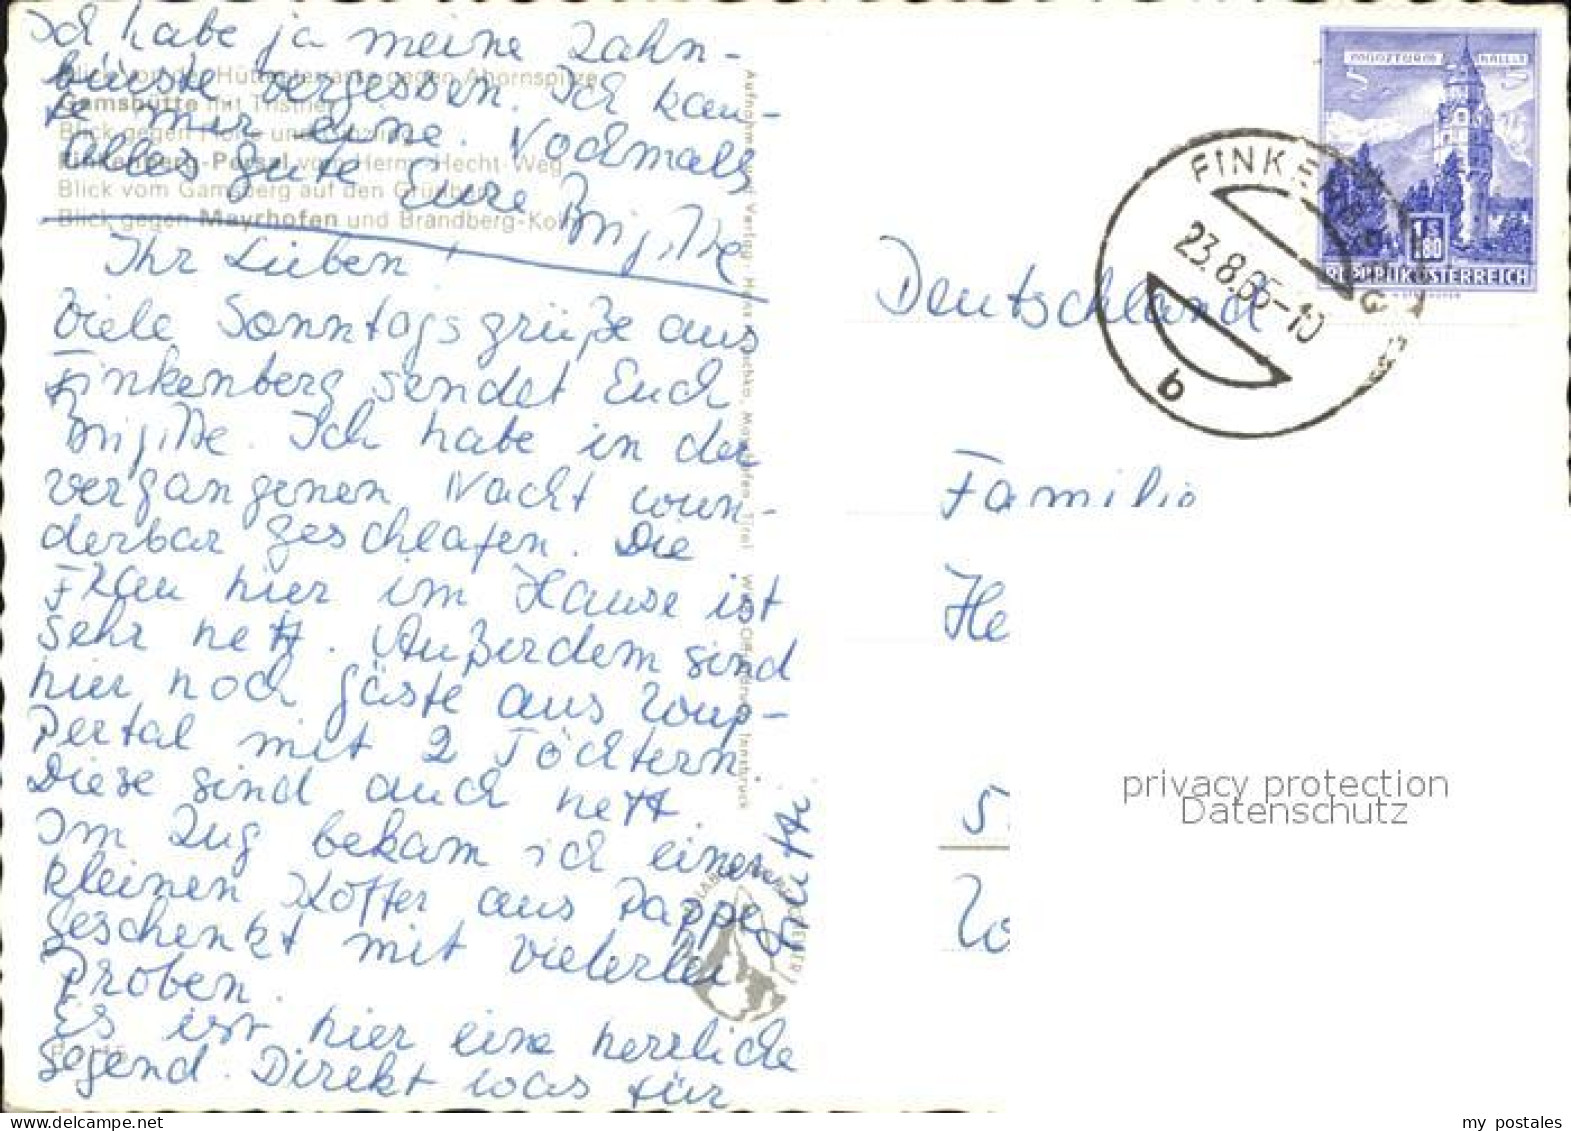 Ich habe ja meine Zahn-
bürste vergessen. Ich kau-
fe mir eine. Nochmals
alles gute Eure Brigitte
Blick von der Hüttenterrasse gegen Ahornspitze
Gamshütte mit Tristner
Blick gegen
Finkenberg-Persal vom Herm. Hecht-Weg
Blick vom Gamsberg auf den Grünberg
Blick gegen Mayrhofen und Brandberg-Kolm
Ihr Lieben!
Viele Sonntagsgrüße aus
Finkenberg sendet Euch
Brigitte. Ich habe in der
vergangenen Nacht wun-
derbar geschlafen. Die
Frau hier im Hause ist
sehr nett. Außerdem sind
hier noch Gäste aus Wup-
pertal mit 2 Töchtern.
Diese sind auch nett.
Im Zug bekam ich einen
kleinen Koffer aus Pappe
geschenkt mit vielerlei
Proben.
Es ist hier eine herrliche
Gegend. Direkt was für
Aufnahme und Verlag: Hans Mayrhofen, Tirol
Innsbruck
MÜNZTURM HALL i. T
1 S 80
REPUBLIK ÖSTERREICH
FINKENBERG
23.8.65-10
b
Deutschland
Familie
He
privacy protection
Datenschutz
my_postales